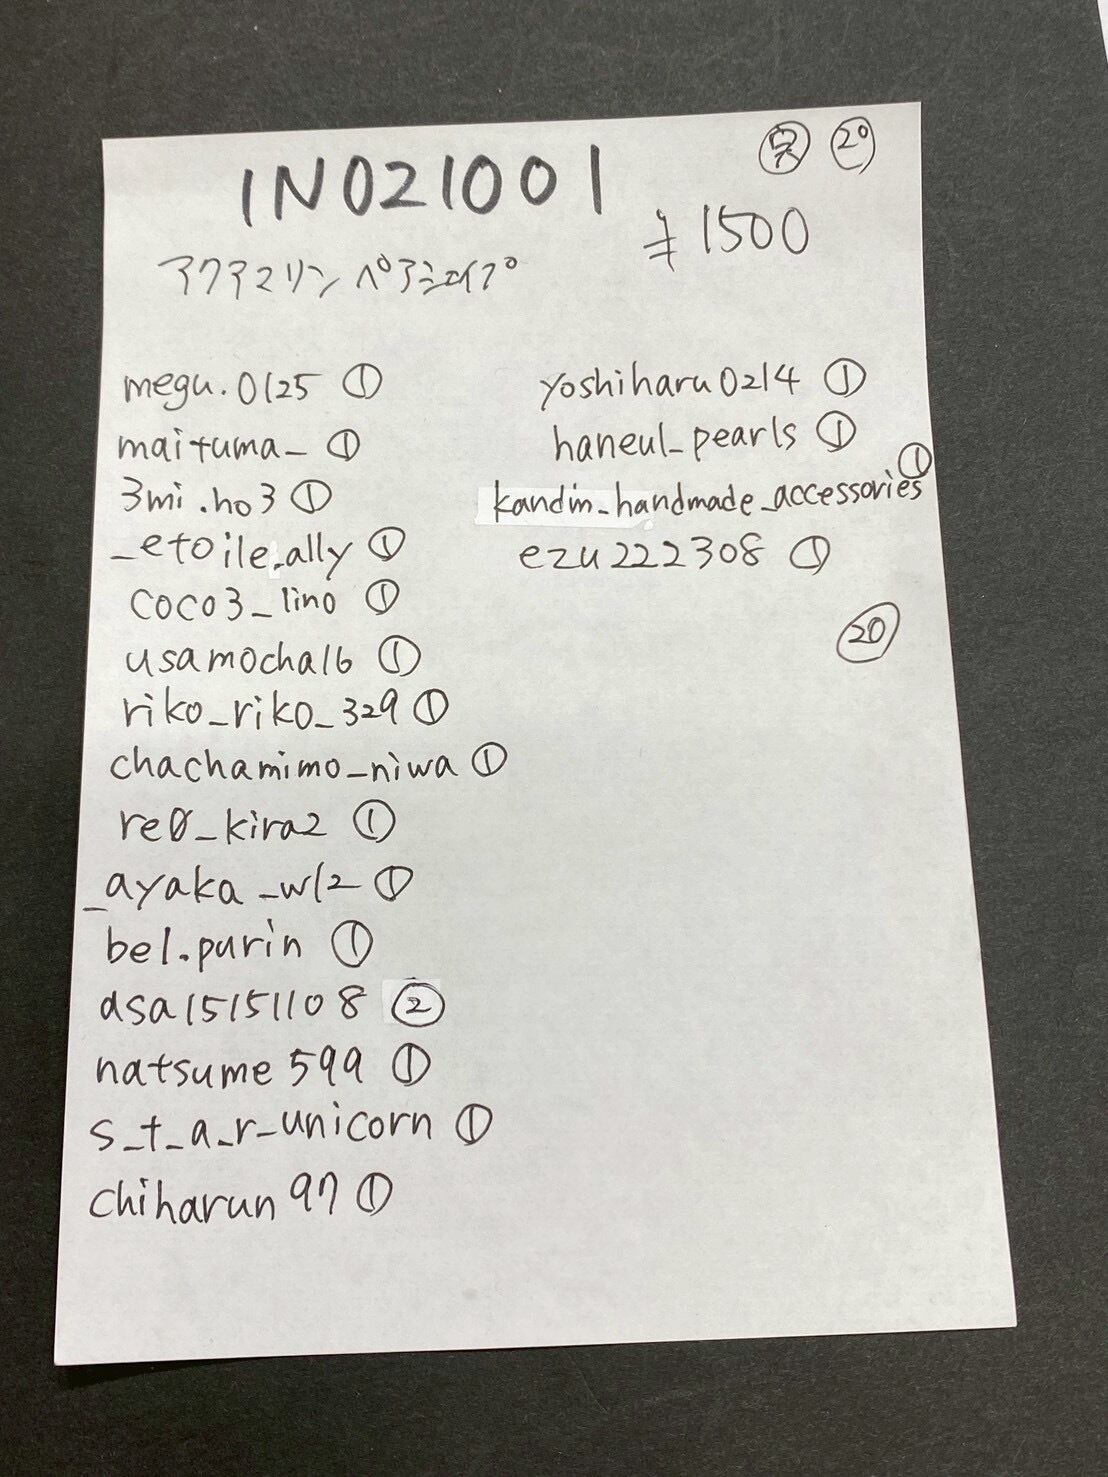 IN021001
実 20
¥1500
アクアマリン ペアシェイプ
megu.0125 ①
maituma_ ①
3mi.ho3 ①
_etoile.ally ①
coco3_lino ①
usamocha16 ①
riko_riko_329 ①
chachamimo_niwa ①
re0_kira2 ①
_ayaka_w12 ①
bel.purin ①
asa15151108 ②
natsume599 ①
s_t_a_r_unicorn ①
chiharun97 ①
yoshiharu0214 ①
haneul_pearls ①
kandin_handmade_accessories ①
ezu222308 ①
⑳